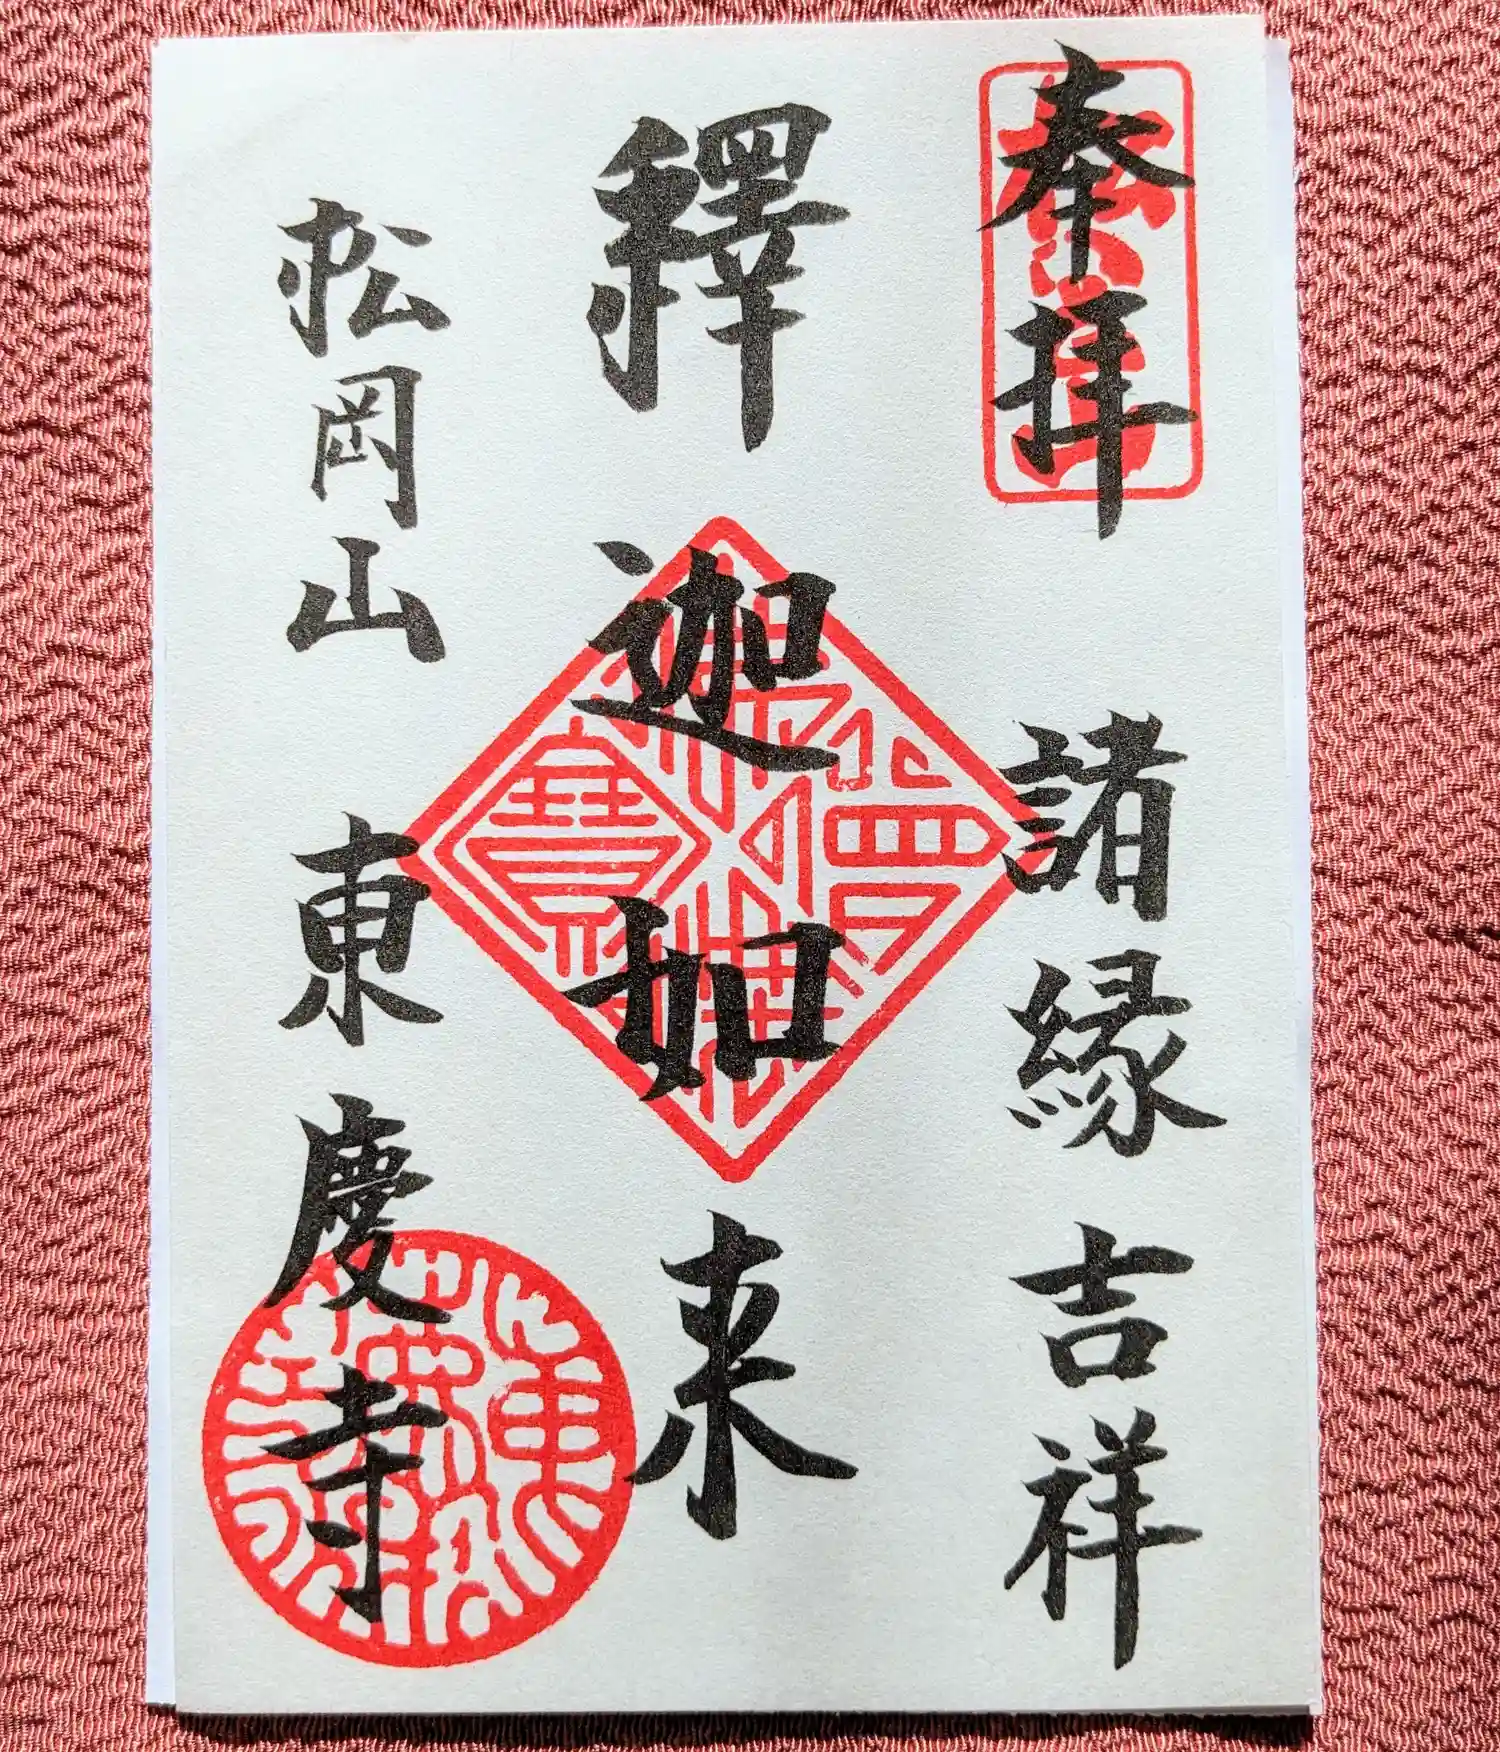 奉拝
諸縁吉祥
釋迦如来
松岡山
東慶寺